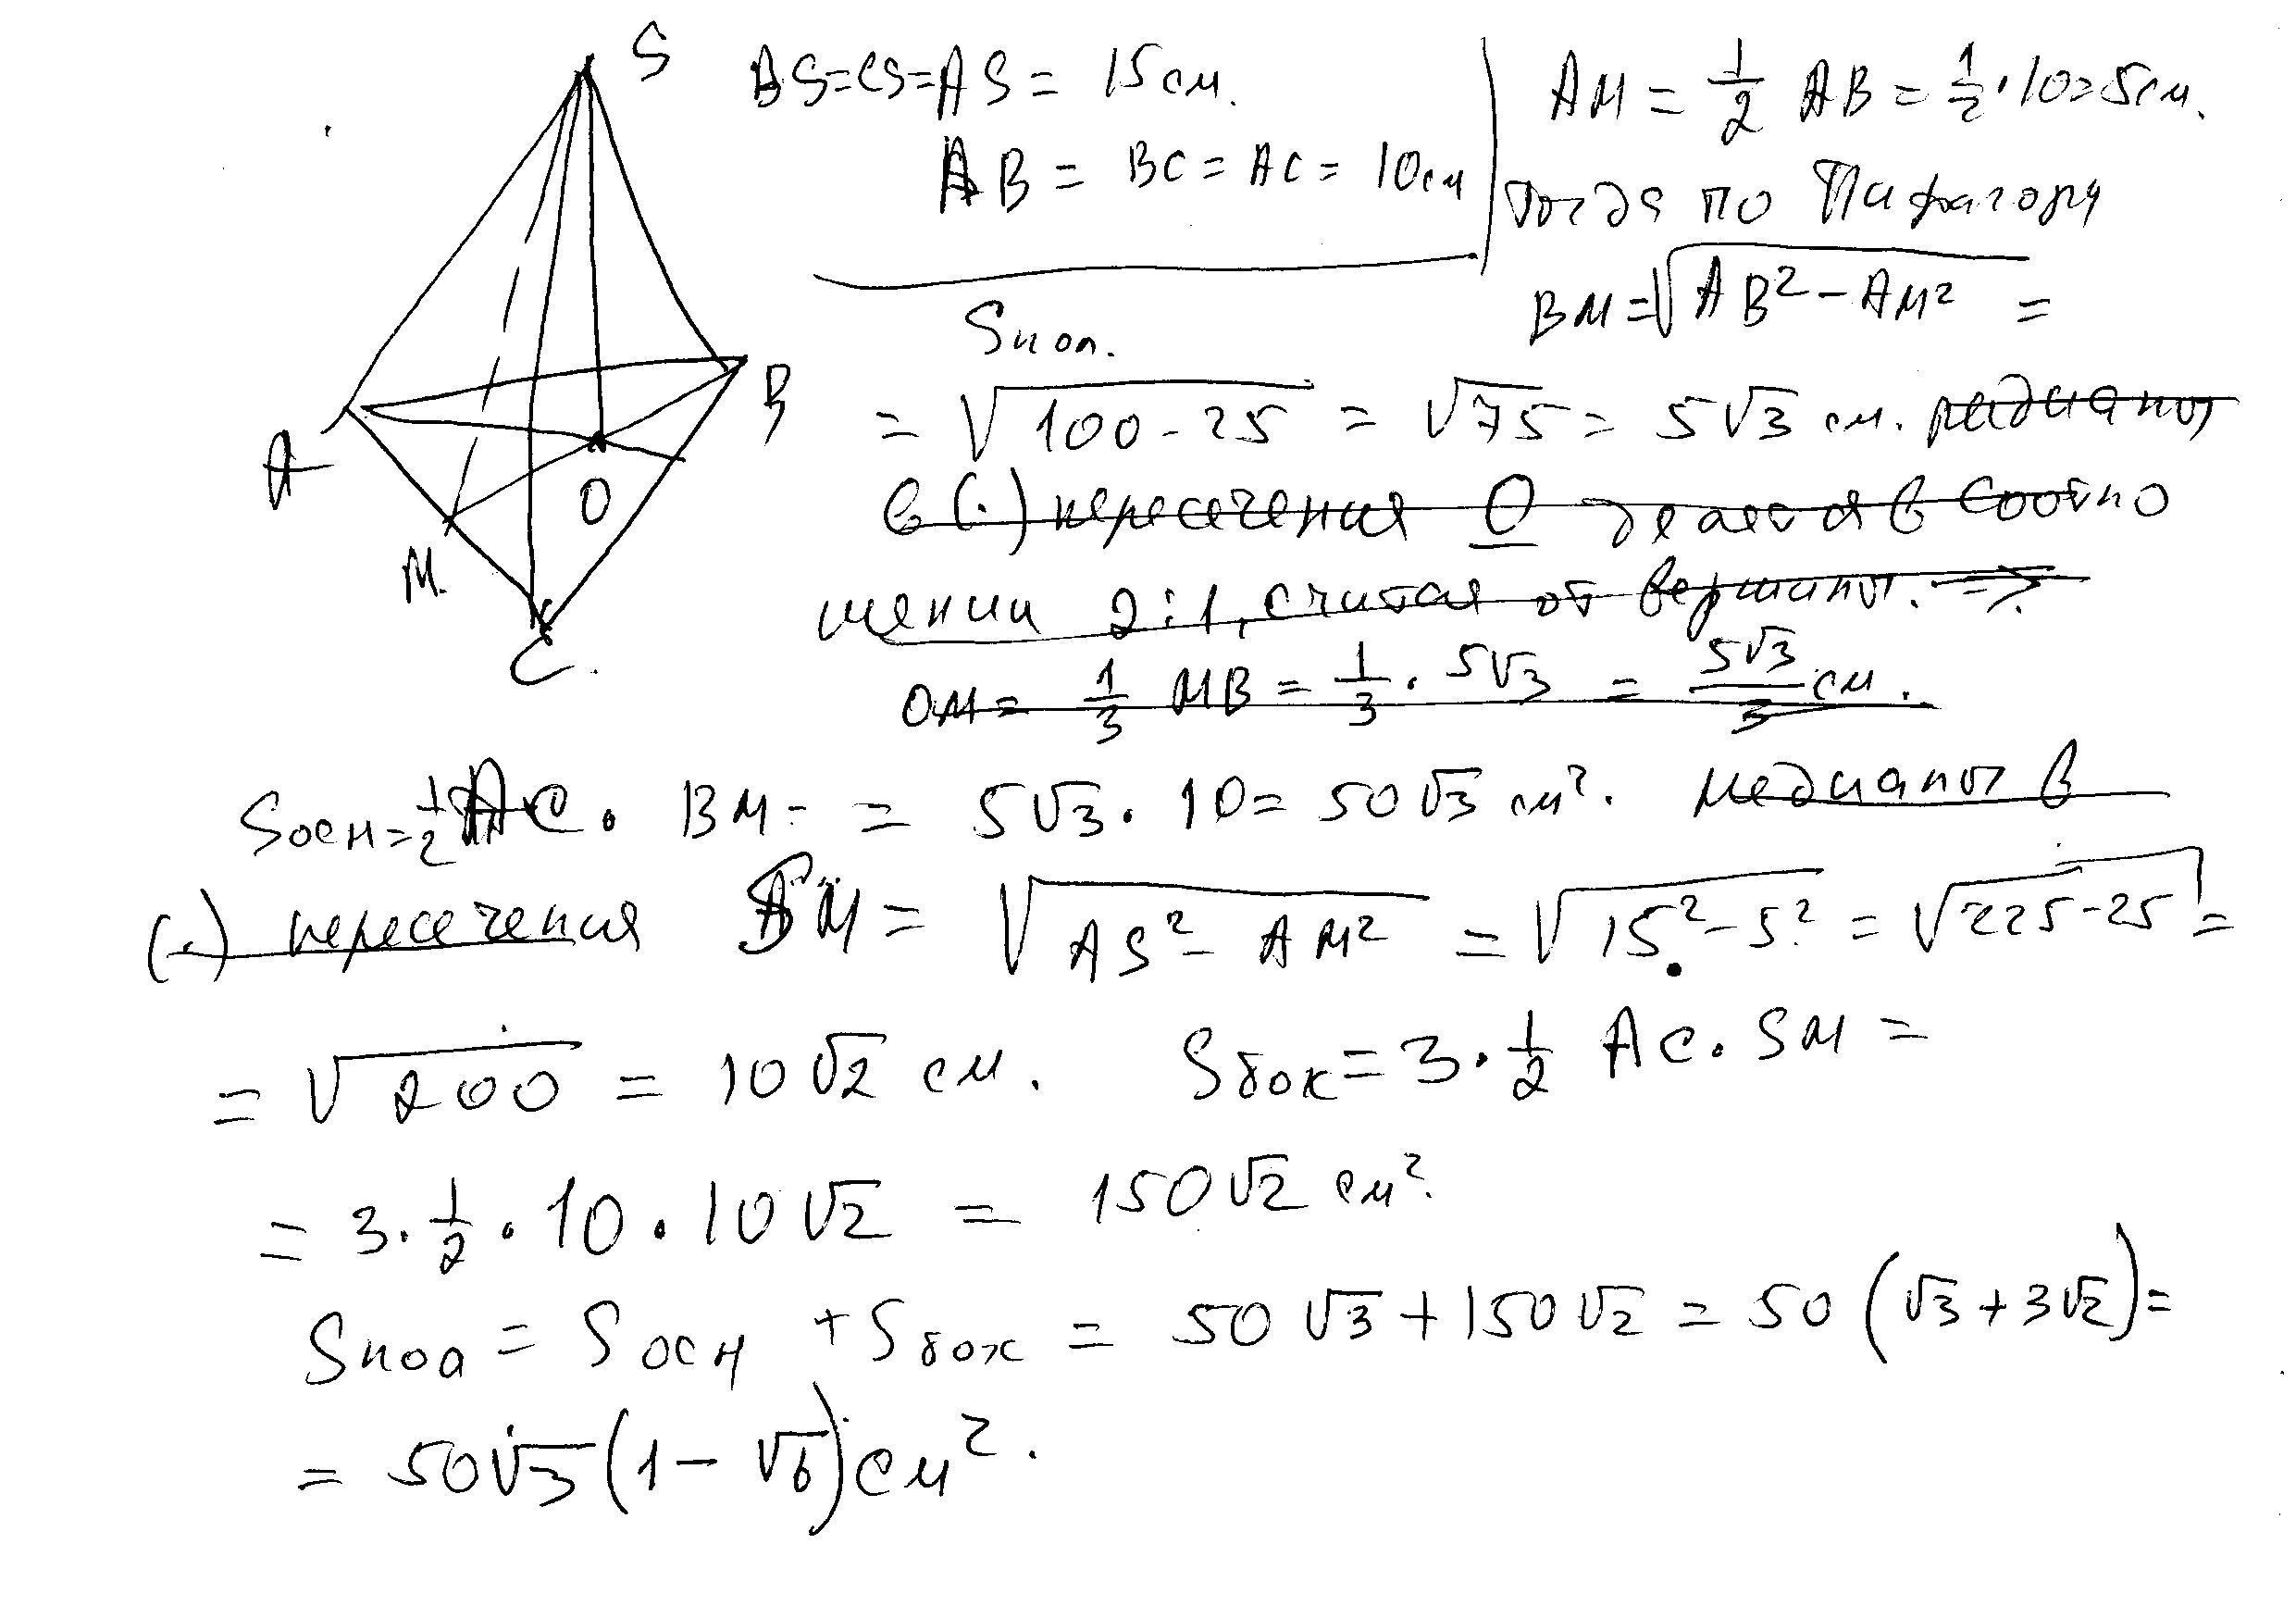 S
A
B
O
M.
C.
BS=CS=AS = 15 см.
AB = BC = AC = 10 см
Sпол.
AM = 1/2 AB = 1/2 · 10 = 5 см.
тогда по Пифагору
BM = √(AB² - AM²) =
= √(100-25) = √75 = 5√3 см. медианы
в (·) пересечения O делятся в соотно
шении 2:1, считая от вершины. =>
OM = 1/3 MB = 1/3 · 5√3 = 5√3/3 см.
Sосн = 1/2 AC · BM - = 5√3 · 10 = 50√3 см². медианы в
(·) пересечения SM = √(AS² - AM²) = √(15² - 5²) = √(225-25) =
= √200 = 10√2 см. Sбок = 3 · 1/2 AC · SM =
= 3 · 1/2 · 10 · 10√2 = 150√2 см².
Sпол = Sосн + Sбок = 50√3 + 150√2 = 50(√3 + 3√2) =
= 50√3(1 - √6) см².